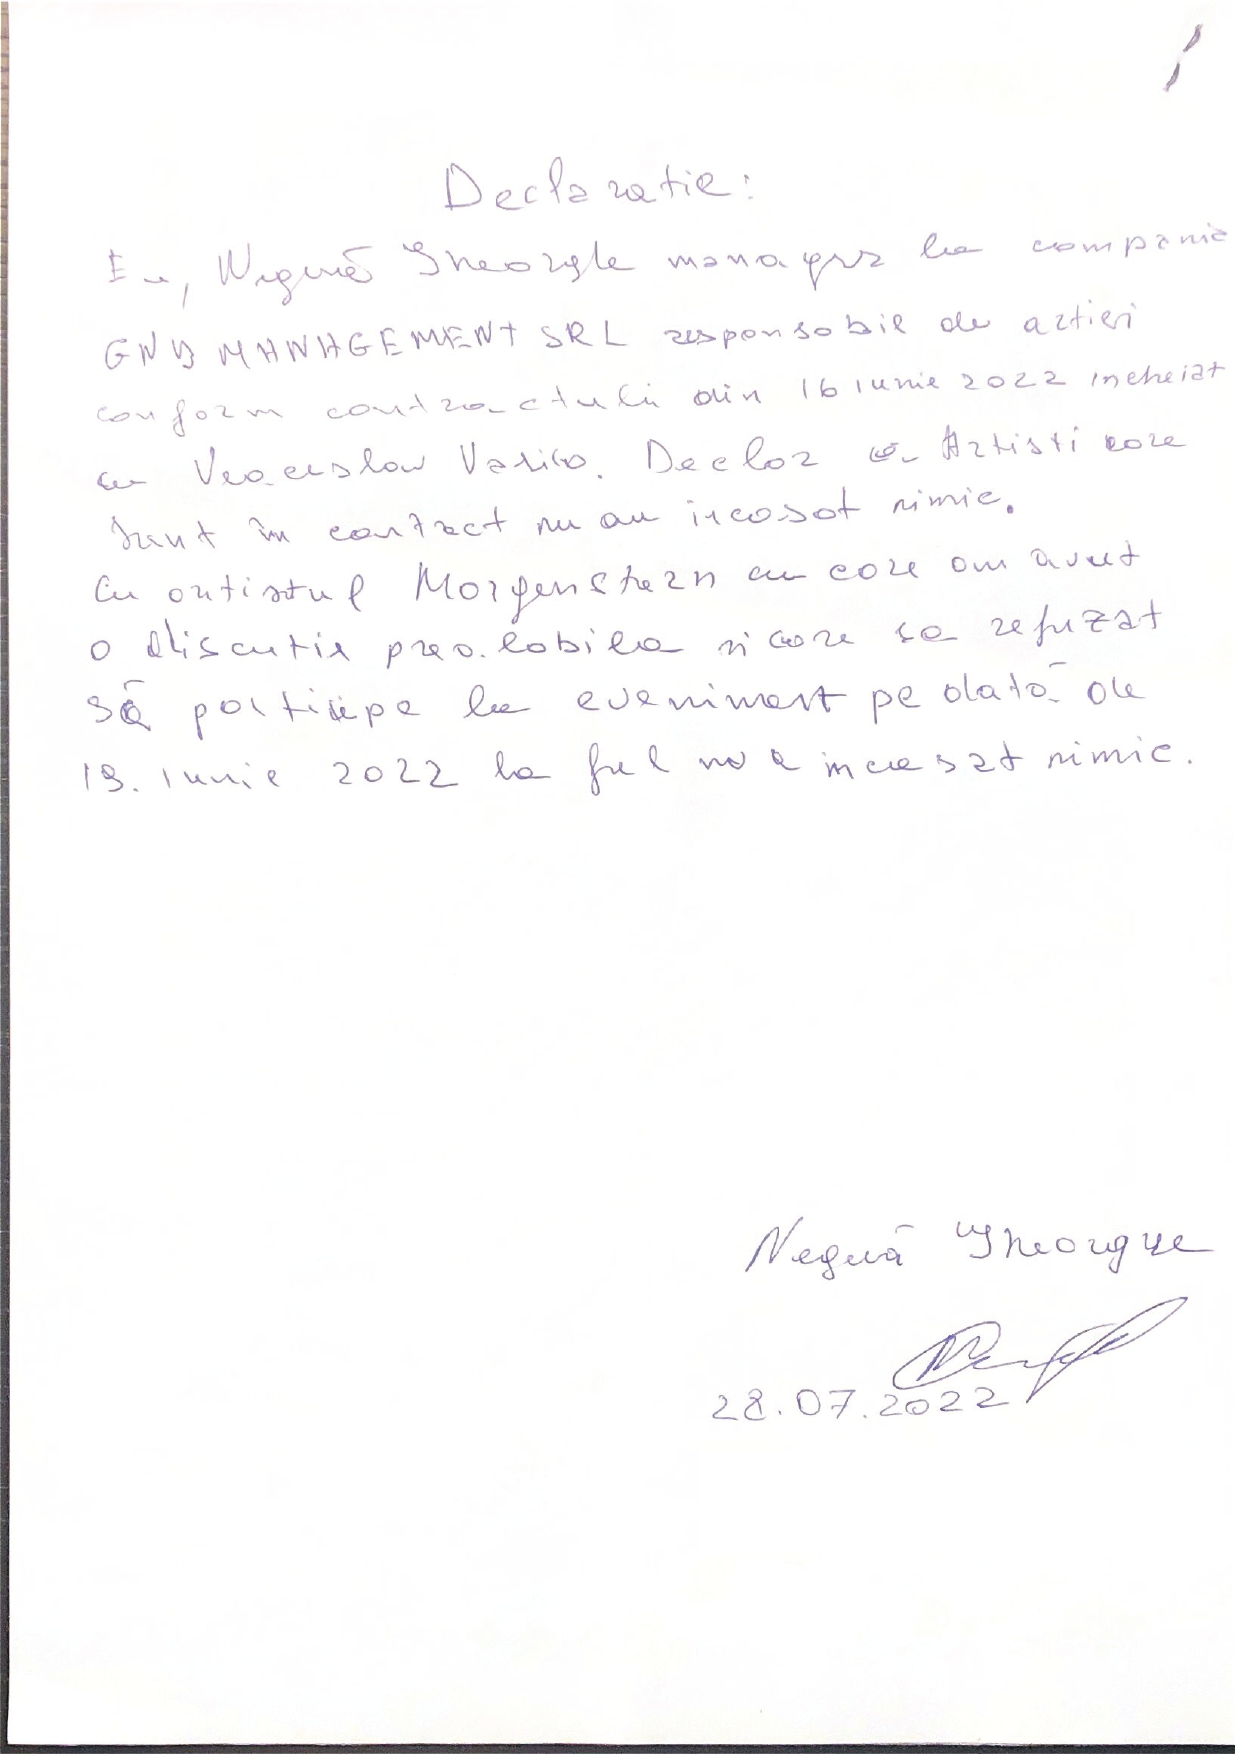 Declaratie:
Eu, Negură Gheorghe manager la companie
GNG MANAGEMENT SRL responsabil de artisti
conform contractului din 16 iunie 2022 incheiat
cu Veaceslav Vasilco. Declar ca Artisti care
sunt în contract nu au incasat nimic.
Cu artistul Morgenshtern cu care am avut
o discutie prealabila si care sa refuzat
să participe la eveniment pe dată de
19. iunie 2022 la fel nu a incasat nimic.
Negură Gheorghe
28.07.2022